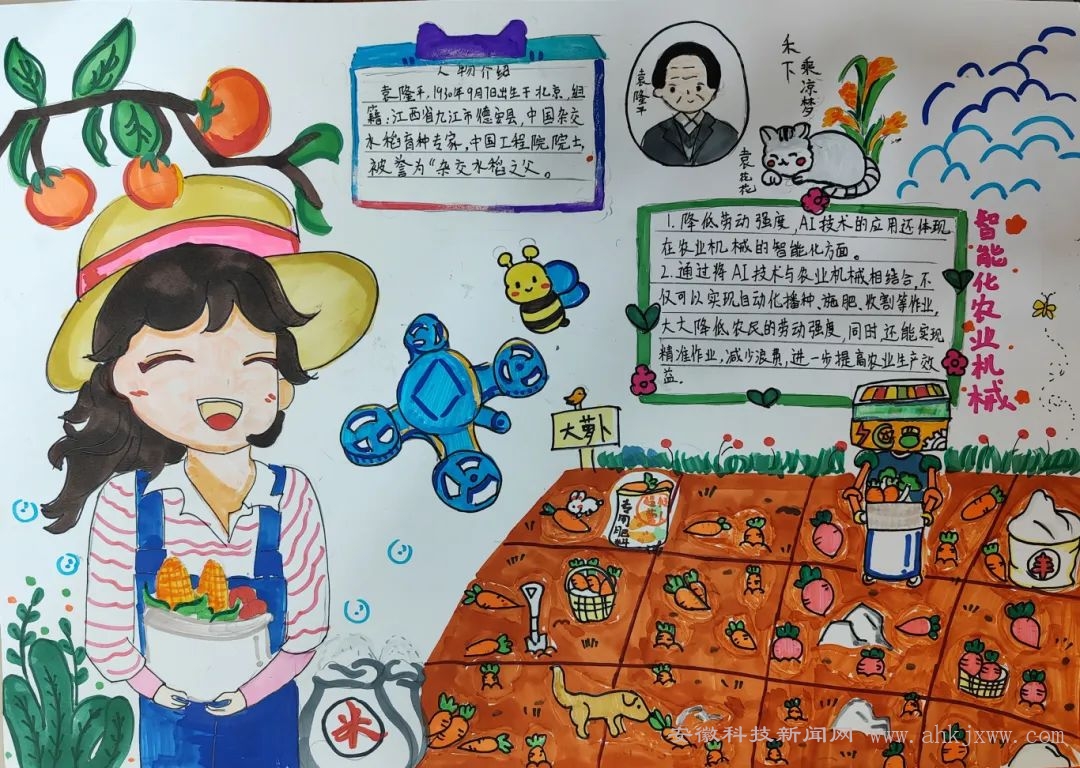 人物介绍
袁隆平,1930年9月7日出生于北京,祖
籍:江西省九江市德安县,中国杂交
水稻育种专家,中国工程院院士,
被誉为“杂交水稻之父。
袁隆平
禾下
乘凉梦
袁花花
1.降低劳动强度,AI技术的应用还体现
在农业机械的智能化方面。
2.通过将AI技术与农业机械相结合,不
仅可以实现自动化播种、施肥、收割等作业,
大大降低农民的劳动强度,同时还能实现
精准作业,减少浪费,进一步提高农业生产效
益.
智能化农业机械
大萝卜
专用肥料
丰
米
安徽科技新闻网 www.ahkjxww.com